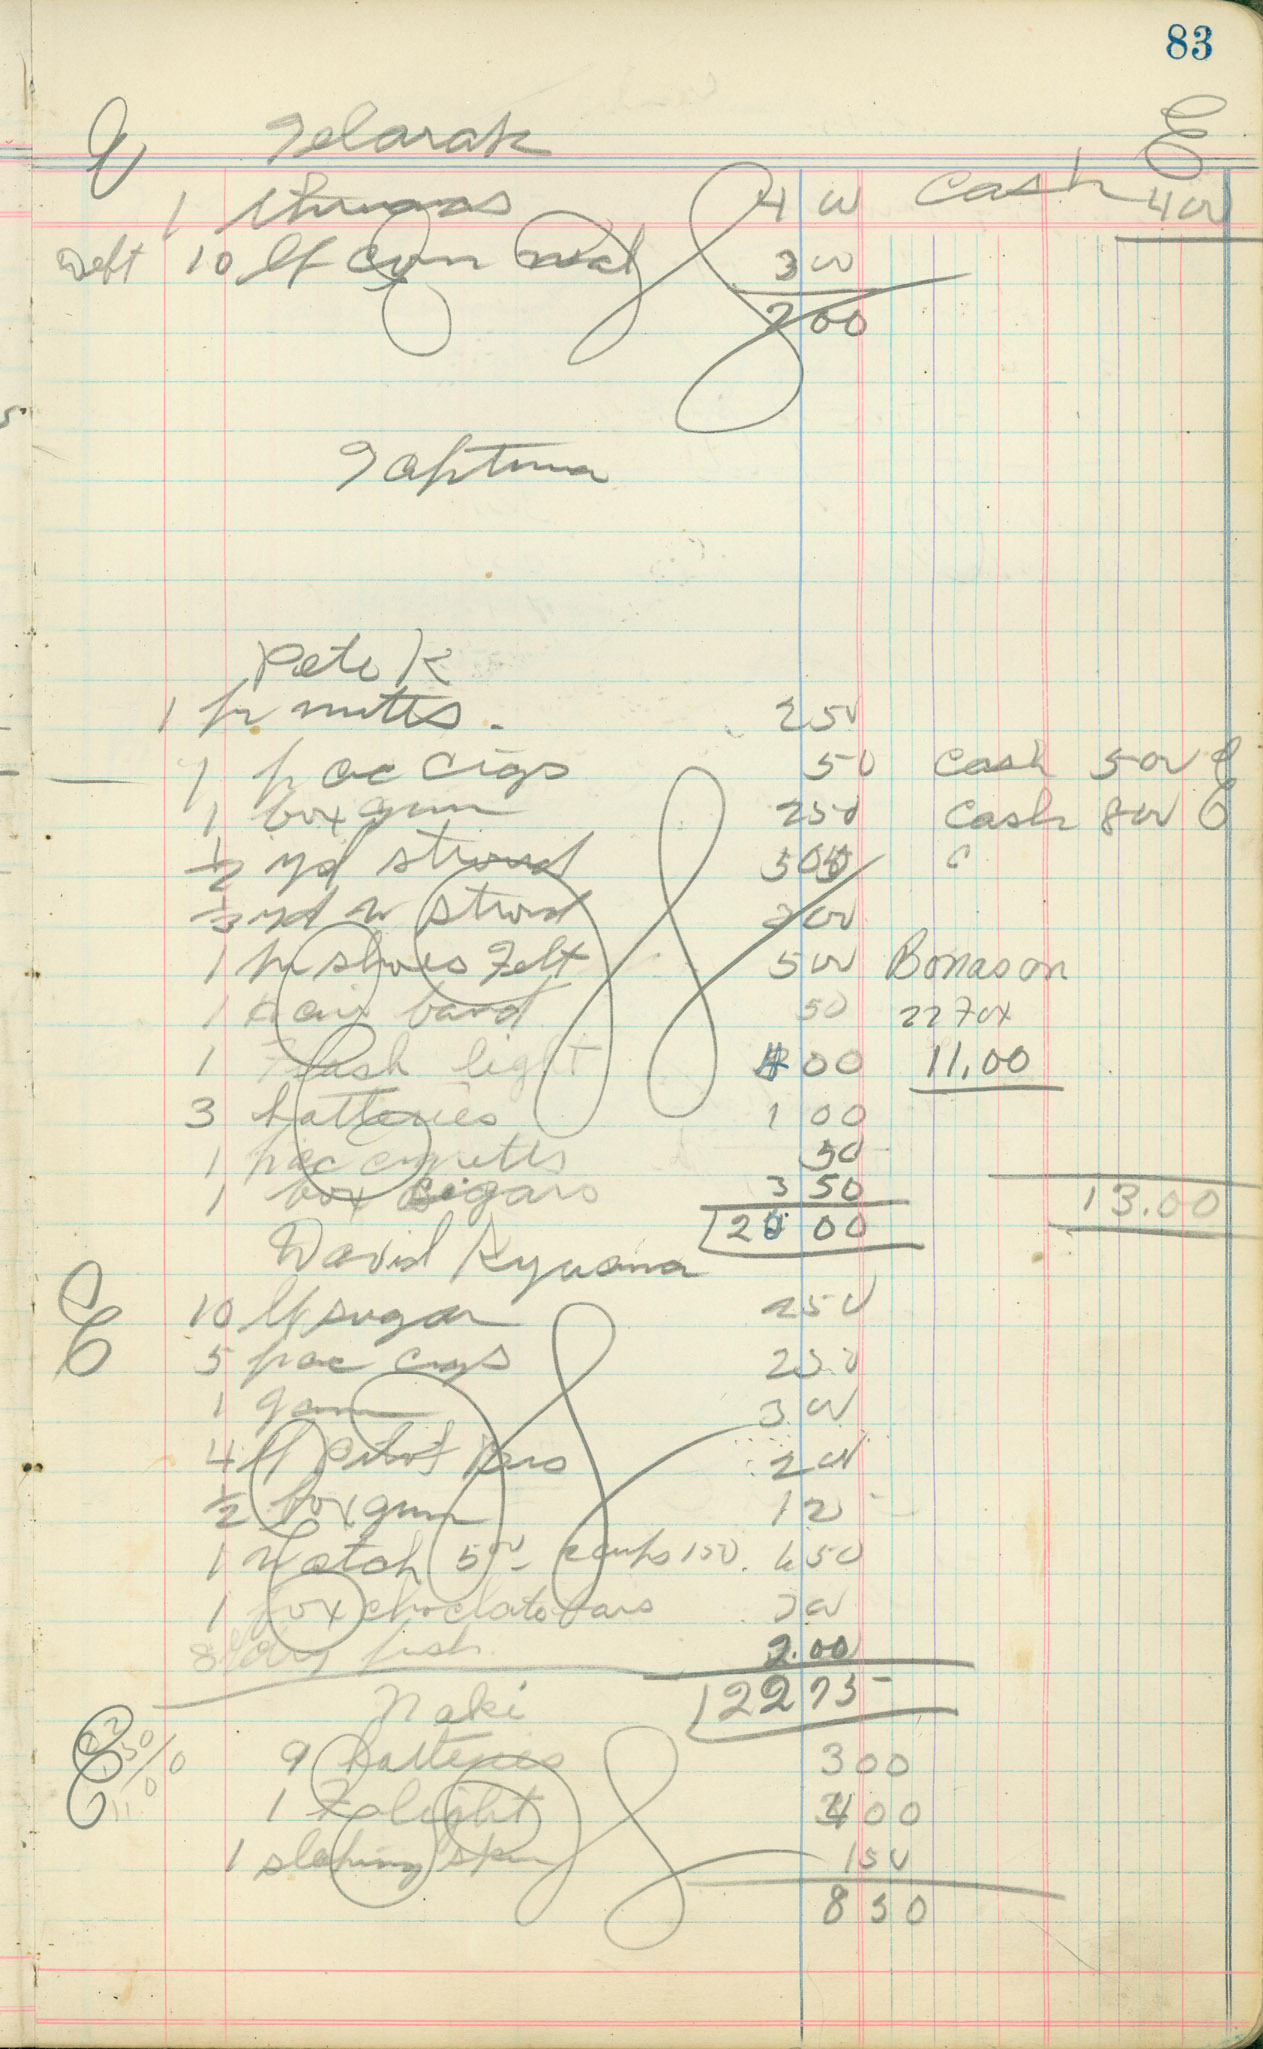 83
Telarak
1 thermos 4 00 Cash 4 00
Deft 10 lb corn meal 3 00
7 00
Taptuna
Pete K
1 pr mitts. 2 50
1 pac cigs 50 Cash 5 00
1 box gum 2 50 Cash 8 00
1/2 yd stroud 3 00
1/3 yd w stroud 2 00
1 pr shoes Felt 5 00 Bonason
1 hair band 50 22 70
1 Flash light 4 00 11.00
3 batteries 1 00
1 pac cigretts 50
1 box cigars 3 50 13.00
2 00
David Kyusma
10 lb sugar 2 50
5 pac cigs 2 50
1 gam 3 00
4 lb Pilot brs 2 00
1/2 box gum 1 25
1 Watch 5 00 - caups 1 50. 6 50
1 box choclate bars 3 00
8 dry fish 2.00
22 75
Naki
9 batteries 3 00
1 F light 4 00
1 sleping skin 1 50
8 50